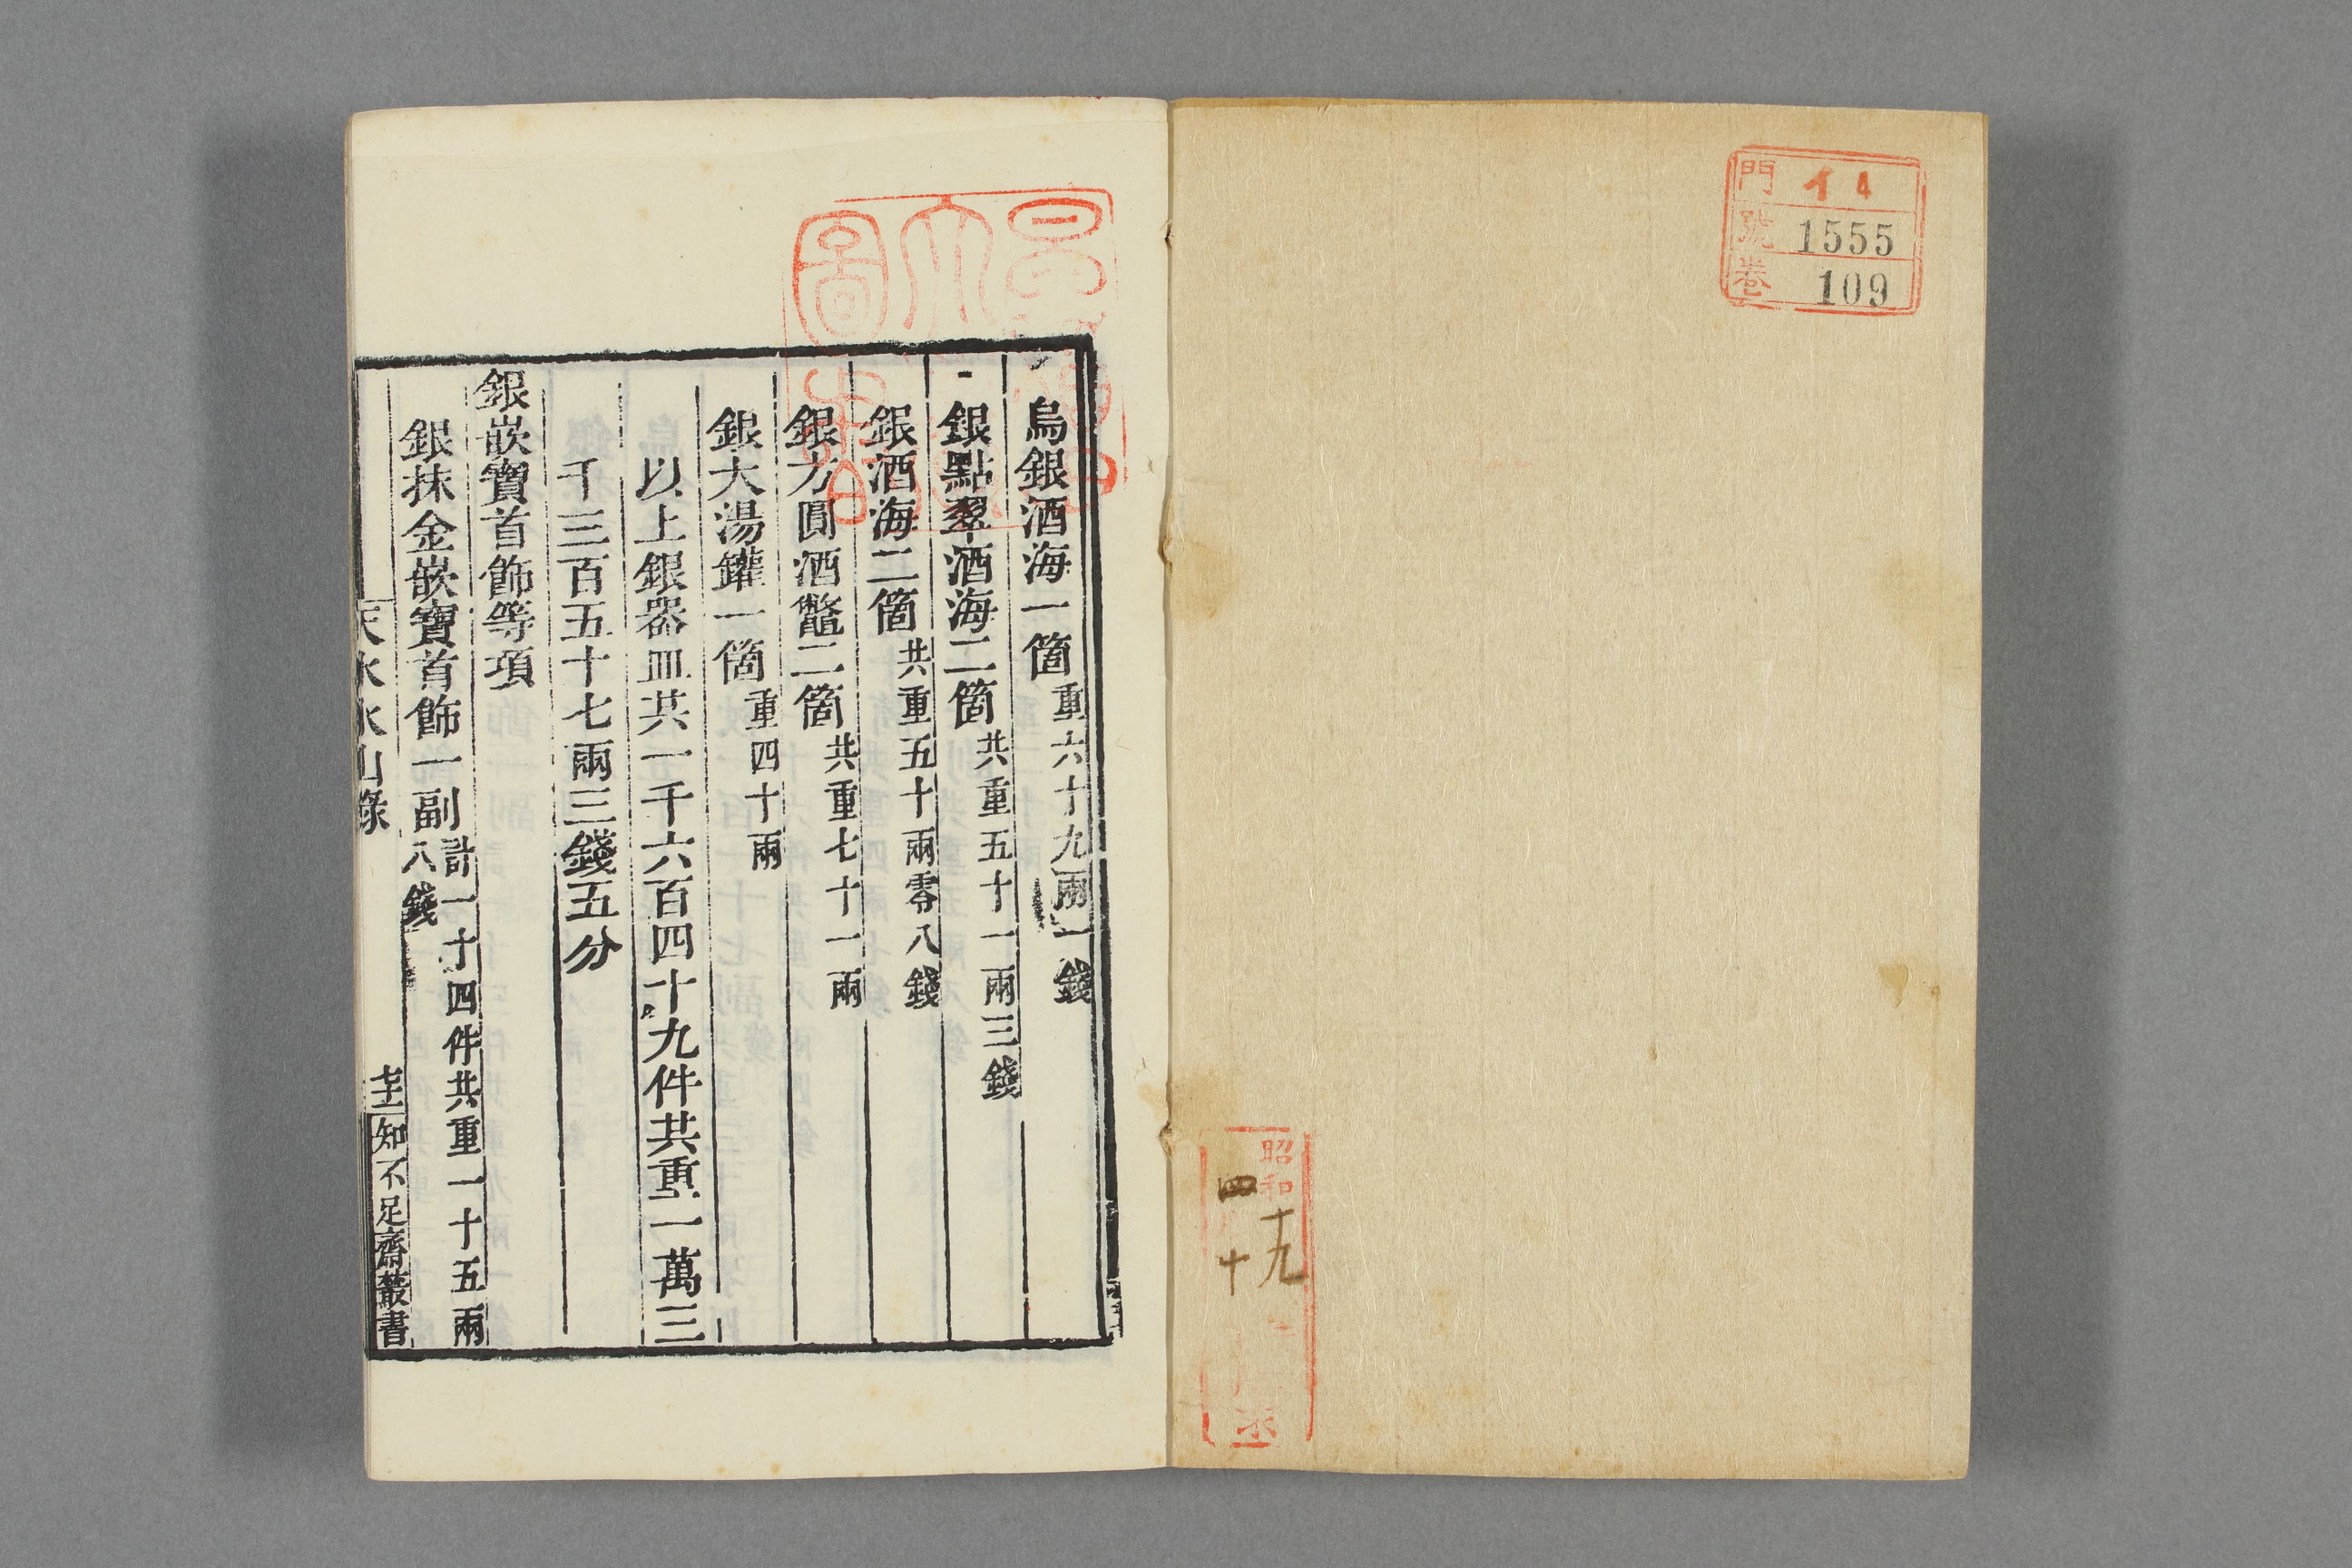 門 イ4
號 1555
卷 109
昭和十九
四
十
烏銀酒海一箇重六十九兩一錢
銀點翠酒海二箇共重五十一兩三錢
銀酒海二箇共重五十兩零八錢
銀方圓酒鼈二箇共重七十一兩
銀大湯鑵一箇重四十兩
以上銀器皿共一千六百四十九件共重一萬三
千三百五十七兩三錢五分
銀嵌寶首飾等項
銀抹金嵌寶首飾一副計一十四件共重一十五兩
八錢
天水冰山錄
知不足齋叢書